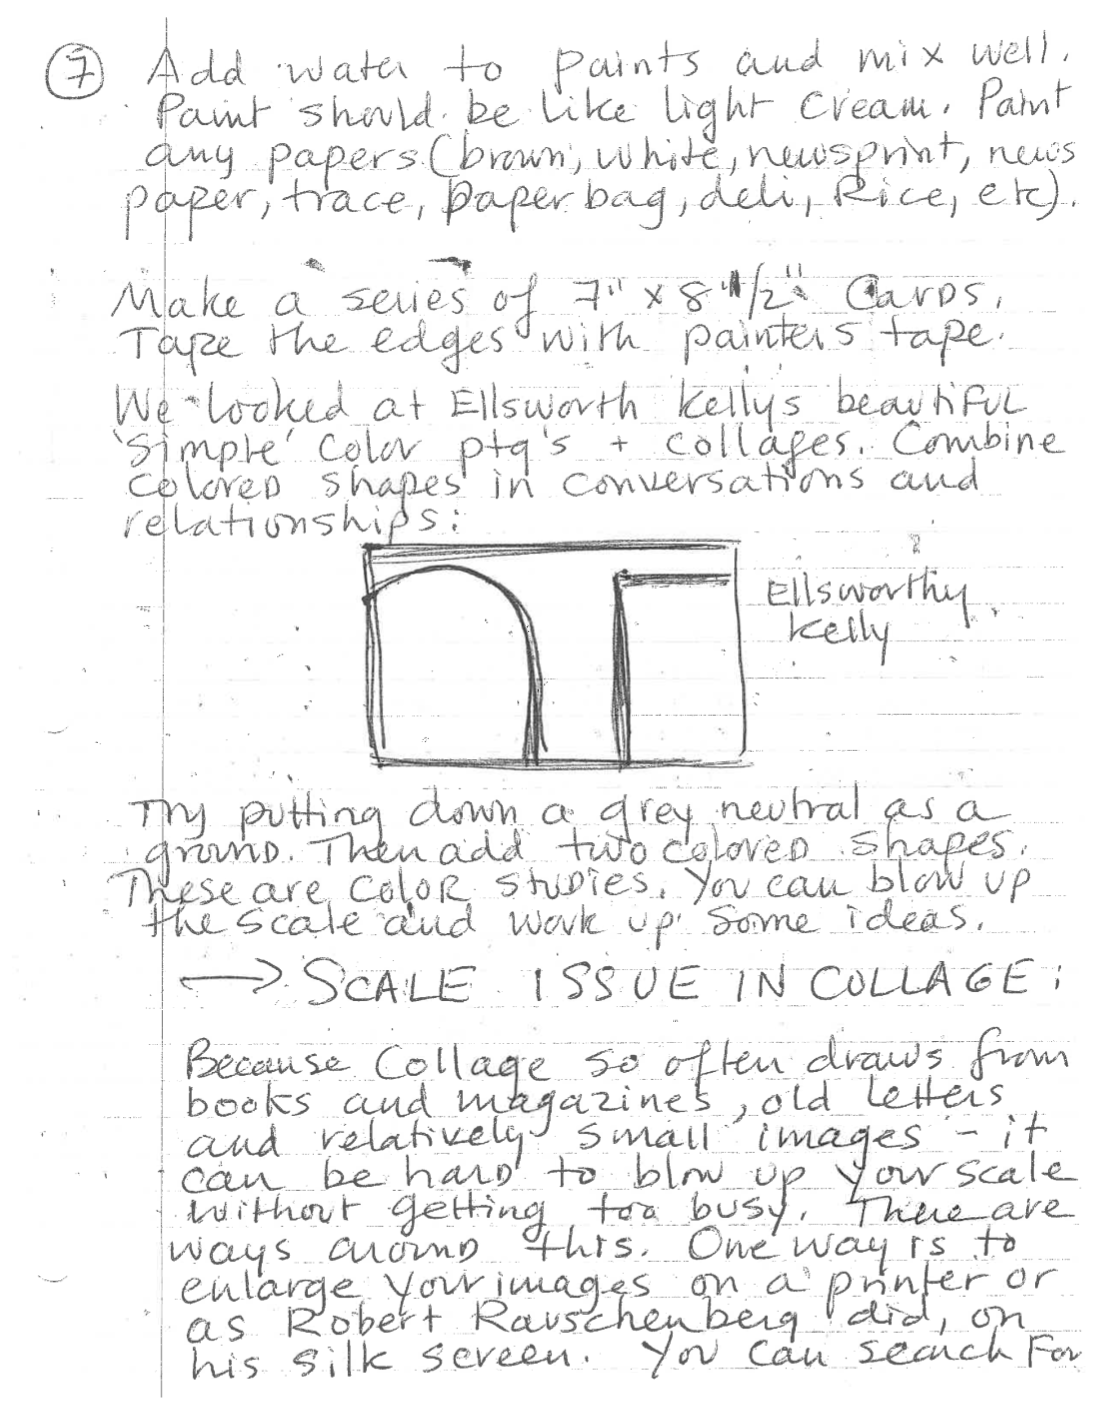 7 Add water to paints and mix well.
Paint should be like light cream. Paint
any papers (brown, white, newsprint, news
paper, trace, paper bag, deli, Rice, etc).
Make a series of 7" x 8 1/2" Cards.
Tape the edges with painters tape.
We looked at Ellsworth Kelly's beautiful
'Simple' Color ptg's + collages. Combine
colored shapes in conversations and
relationships:
Ellsworthy
Kelly
Try putting down a grey neutral as a
ground. Then add two colored shapes.
These are color studies. You can blow up
the scale and work up some ideas.
→ SCALE ISSUE IN COLLAGE:
Because Collage so often draws from
books and magazines, old letters
and relatively small images - it
can be hard to blow up your scale
without getting too busy. There are
ways around this. One way is to
enlarge your images on a printer or
as Robert Rauschenberg did, on
his silk screen. You can search For